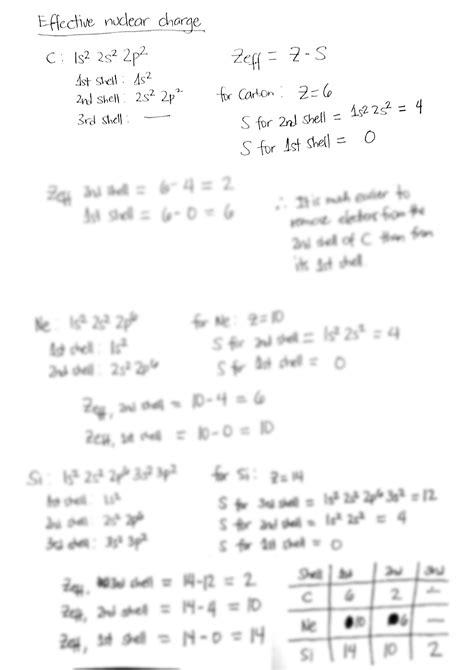 Effective nuclear charge
C: 1s² 2s² 2p²
1st shell: 1s²
2nd shell: 2s² 2p²
3rd shell: —
Zeff = Z - S
for Carbon: Z=6
S for 2nd shell = 1s² 2s² = 4
S for 1st shell = 0
Zeff 2nd shell = 6-4 = 2
1st shell = 6-0 = 6
∴ It is much easier to
remove electrons from the
2nd shell of C than from
its 1st shell.
Ne: 1s² 2s² 2p⁶
1st shell: 1s²
2nd shell: 2s² 2p⁶
for Ne: Z=10
S for 2nd shell = 1s² 2s² = 4
S for 1st shell = 0
Zeff, 2nd shell = 10-4 = 6
Zeff, 1st shell = 10-0 = 10
Si: 1s² 2s² 2p⁶ 3s² 3p²
1st shell: 1s²
2nd shell: 2s² 2p⁶
3rd shell: 3s² 3p²
for Si: Z=14
S for 3rd shell = 1s² 2s² 2p⁶ 3s² = 12
S for 2nd shell = 1s² 2s² = 4
S for 1st shell = 0
Zeff, 3rd shell = 14-12 = 2
Zeff, 2nd shell = 14-4 = 10
Zeff, 1st shell = 14-0 = 14
Shell 1st 2nd 3rd
C 6 2 —
Ne 10 6 —
Si 14 10 2